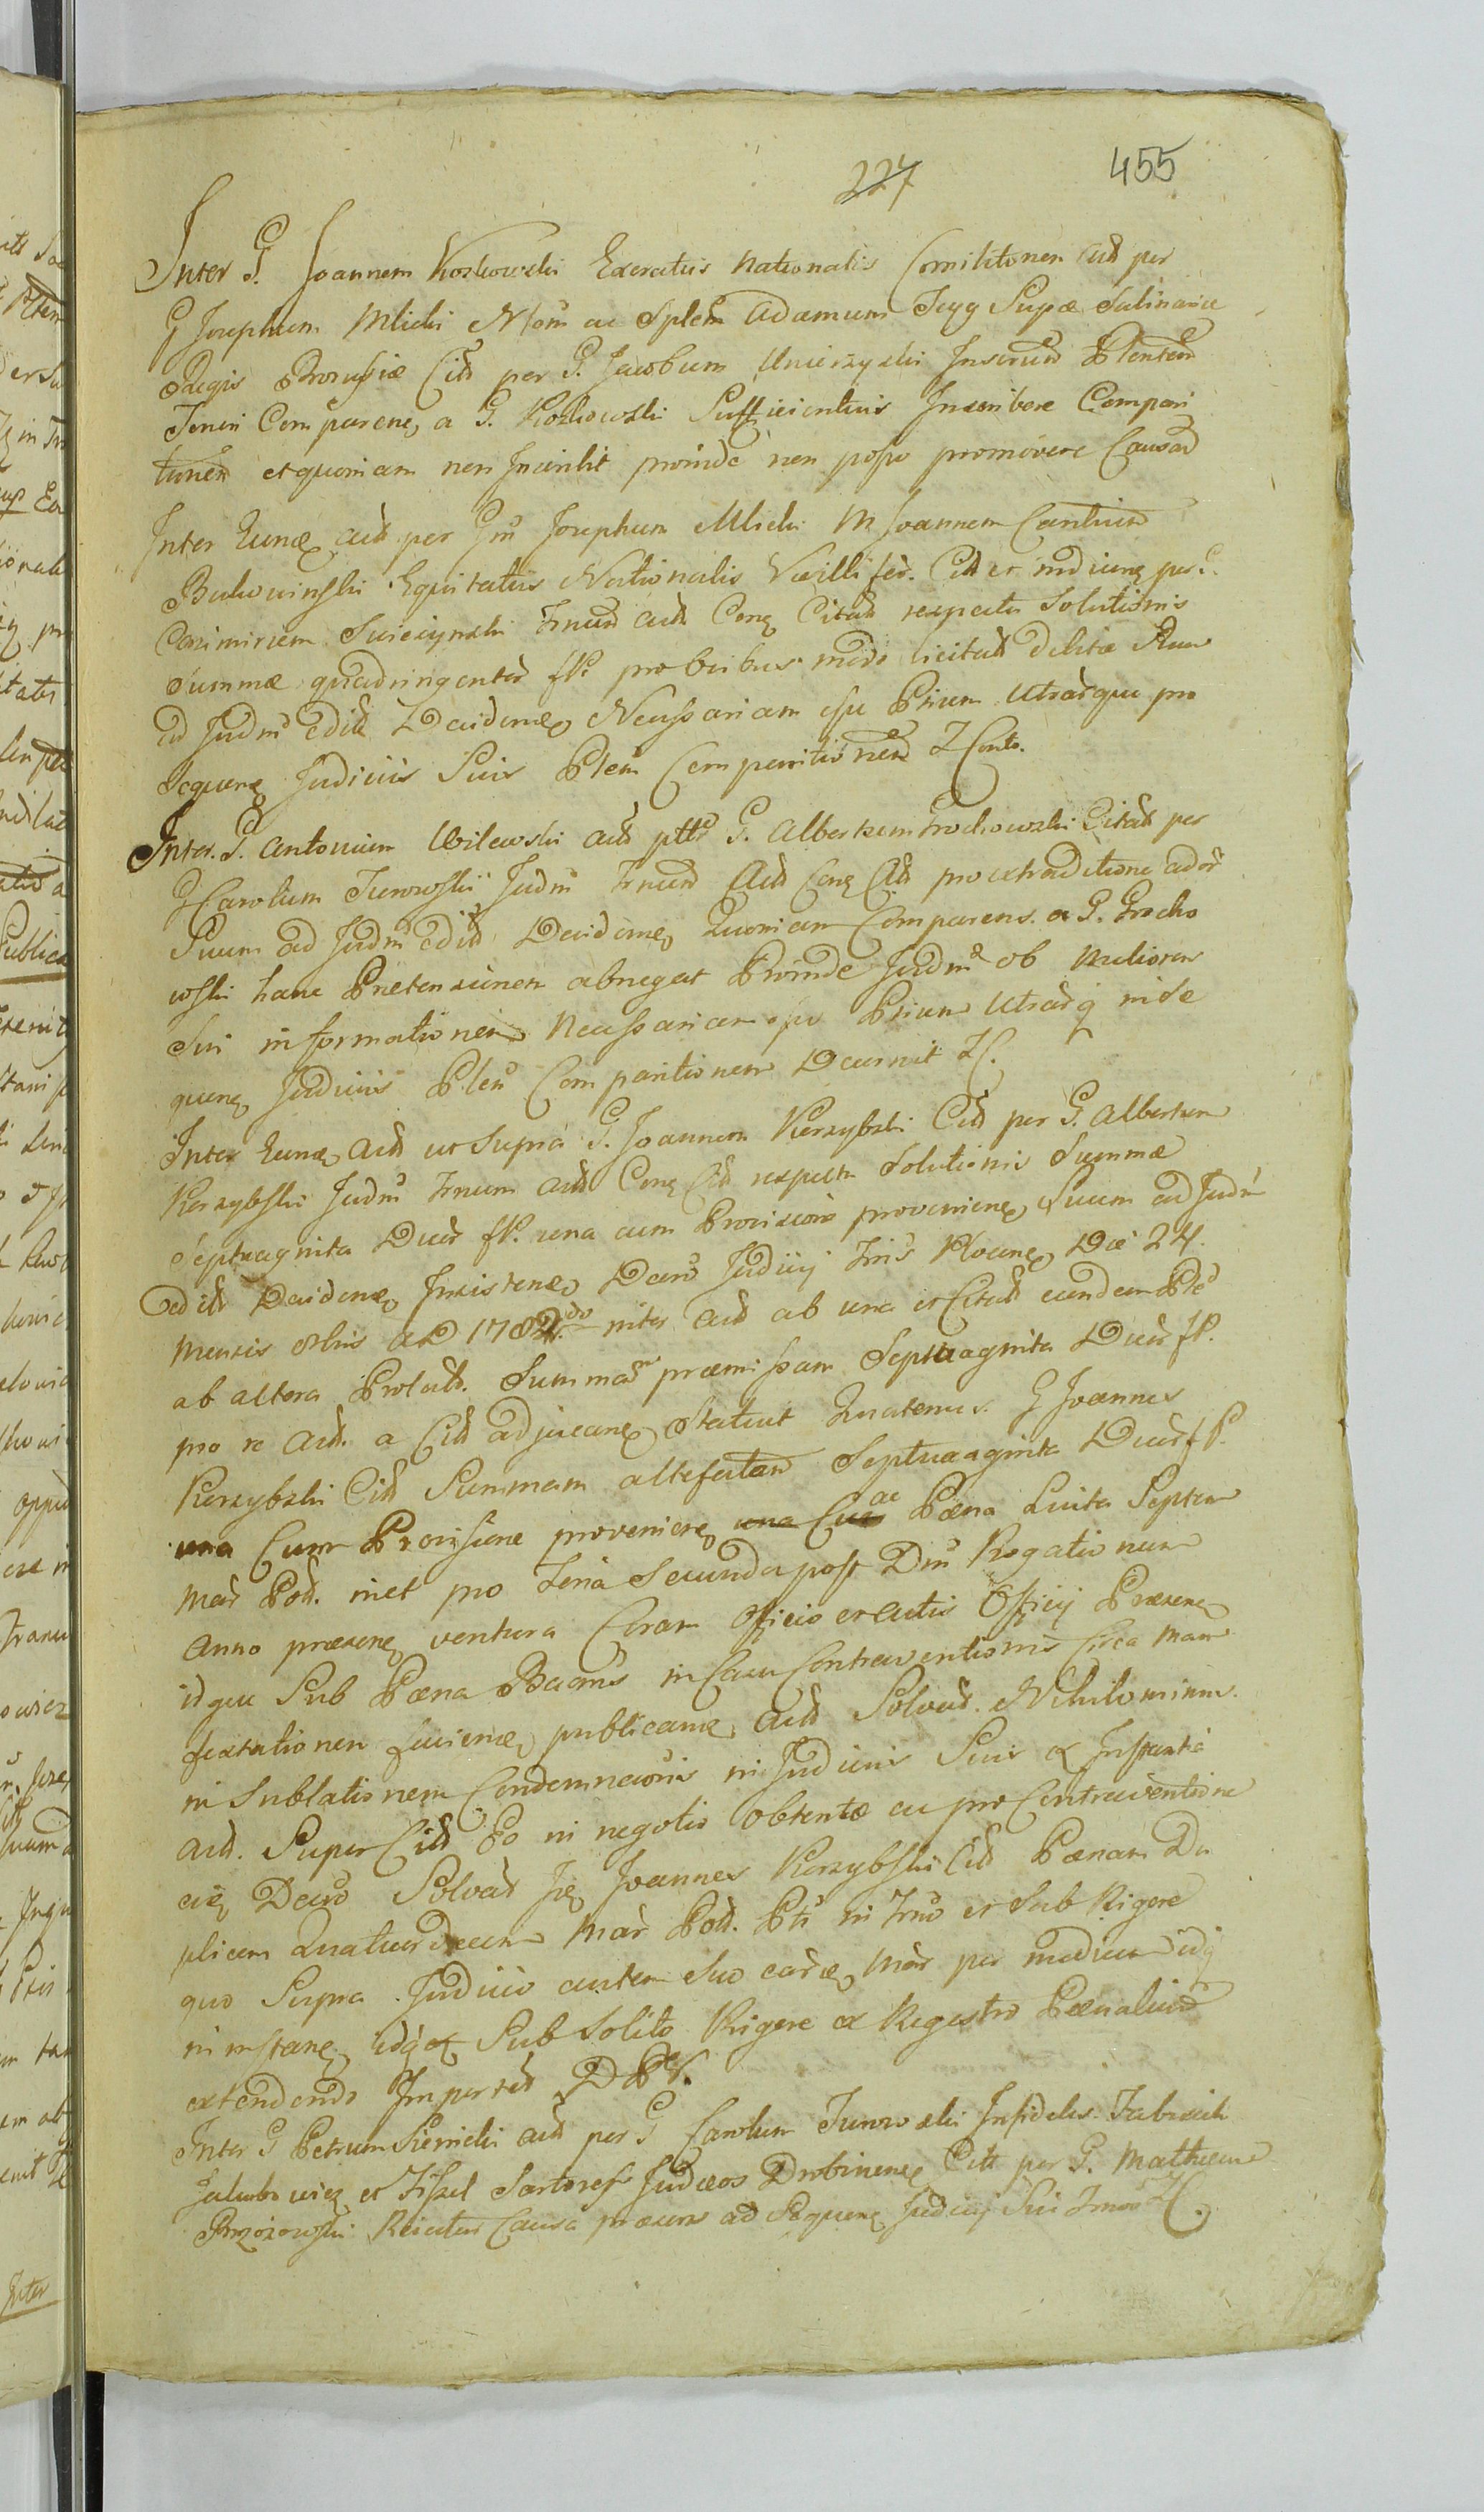 227 455
Inter G. Joannem Kozłowski Exercitus Nationalis Comilitonem Actt per
G Josephum Mlicki Nlem ac Splem Adamum Segg Supæ Salinariæ
Regis Borussiæ Citt per G. Jacobum Umierzyski Inserend Plenten
Teneri Comparens a G. Kozłowski Sufficientius Inscribere Compari
tionem et quoniam non Inscribit proinde non posse promovere Causam
Inter eund actt per Gm Josephum Mlicki M Joannem Cantium
Bukowinski Equitatus Nationalis Vexillifer. Citt et indicens per G.
Casimirum Swiezynski Trnum actt Conq Citatt respectu Solutionis
Summæ quadringentor fP. pro bobus modo licitatt debitæ Suum
ad Judm edit Decidend Necessariam esse Ptium Utrarque pro
sequens Judiciis Suis Plem Comparitionem ZConto.
Inter. G. Antonium Wilewski actt ptte G. Albertum Grochowski Citatt per
G Carolum Turowskii Judm Trnum Actt Conq Citt pro extraditione ador
Suum ad Judm edit Decidend Quoniam Comparens a G. Grocho
wski hanc Prætensionem abnegat Proinde Judm ob meliorem
Sui informationem Necessariam esse Ptium Utrarq in Se
quens Judiciis Plem Comparitionem Decernit ZC.
Inter Eund Actt ut Supra G. Joannem Korzybski Citt per G. Albertum
Korzybski Judm Trnum actt Conq Citt respectu Solutionis Summæ
Septuaginta Duar fP. una cum Provisione proveniens Suum ad Judm
edit Decidend Insistendo Decro Judicij Trris Plocens Die 24.
Mensis 8bris AD 1782do inter Actt ab una et Citatt eundem Pte
ab altera Prolatt. Summam præmissam Septuaginta Duar fP.
pro re Actt. a Citt adjucans Statuit Quatenus G Joannes
Korzybski Citt Summam attefatam Septuaginta Duar fP.
una Cum Provisione proveniens una Cum ac Pæna Luita Septem
Mar Pol. inet pro Feria Secunda post Dm Rogationum
Anno præsens ventura Coram Officio et actis Officij Præsens
idque Sub Pæna Bannis in Casu Contraventionis Circa Mani
festationem faciend publicand Actt Solvat. Nihilominus
in Sublationem Condemnaonis in Judiciis Suis ex Instantia
Actt. Super Citt Eo in negotio obtentæ ac pro Contraventione
eiq Decro Solvat Iq Joannes Korzybski Citt Pænam Du
plicem Quatuordecim Mar Pol. Pti in Trno et Sub Rigore
quo Supra Judicio autem Suo eard Mar per medium idq
in instanq idq Sub Solito Rigore ex Regestro Pænalium
extendendo Impertit DPS.
Inter G Petrum Siemicki actt per G Carolum Turowski Infideles Jabrach
Jakubowicz et Fiszel Sartores Judæos Drobinens Citt per G. Mathæum
Brzozowski Reicitur Causa præsens ad Sequens Judicij Sui Trnos ZC.